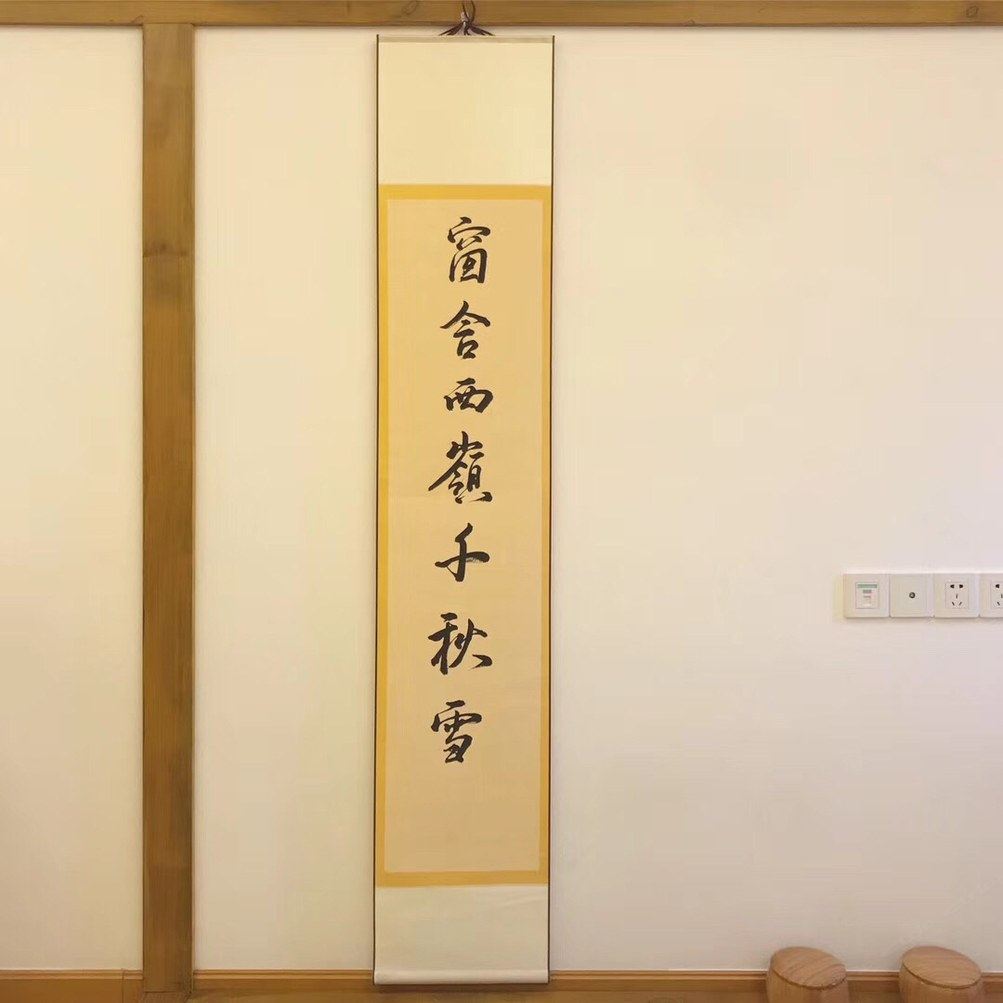 窗含西嶺千秋雪